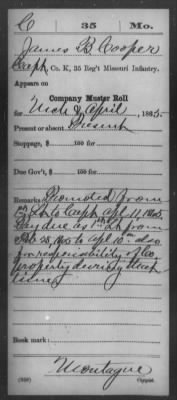 C 35 Mo.
James B Cooper
Capt, Co. K, 35 Reg't Missouri Infantry.
Appears on
Company Muster Roll
for Mch & April, 1865.
Present or absent Present
Stoppage, $ 100 for
Due Gov't, $ 100 for
Remarks Promoted from
1st Lt to Capt Apl 11, 1865.
Pay due as 1st Lt from
Feb 28, 1865 to Apl 10th also
for responsibility of Co
property during that
time
Book mark:
Montague
(358) Copyist.